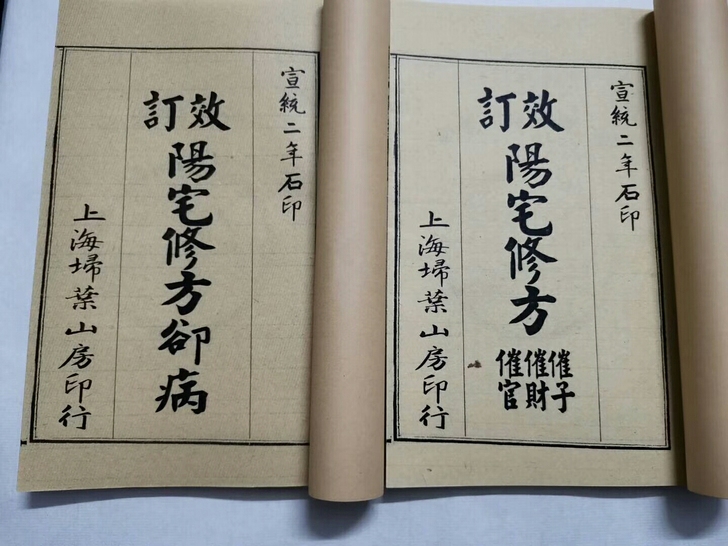 宣統二年石印
效訂
陽宅修方
催子
催財
催官
上海埽葉山房印行
宣統二年石印
效訂
陽宅修方卻病
上海埽葉山房印行